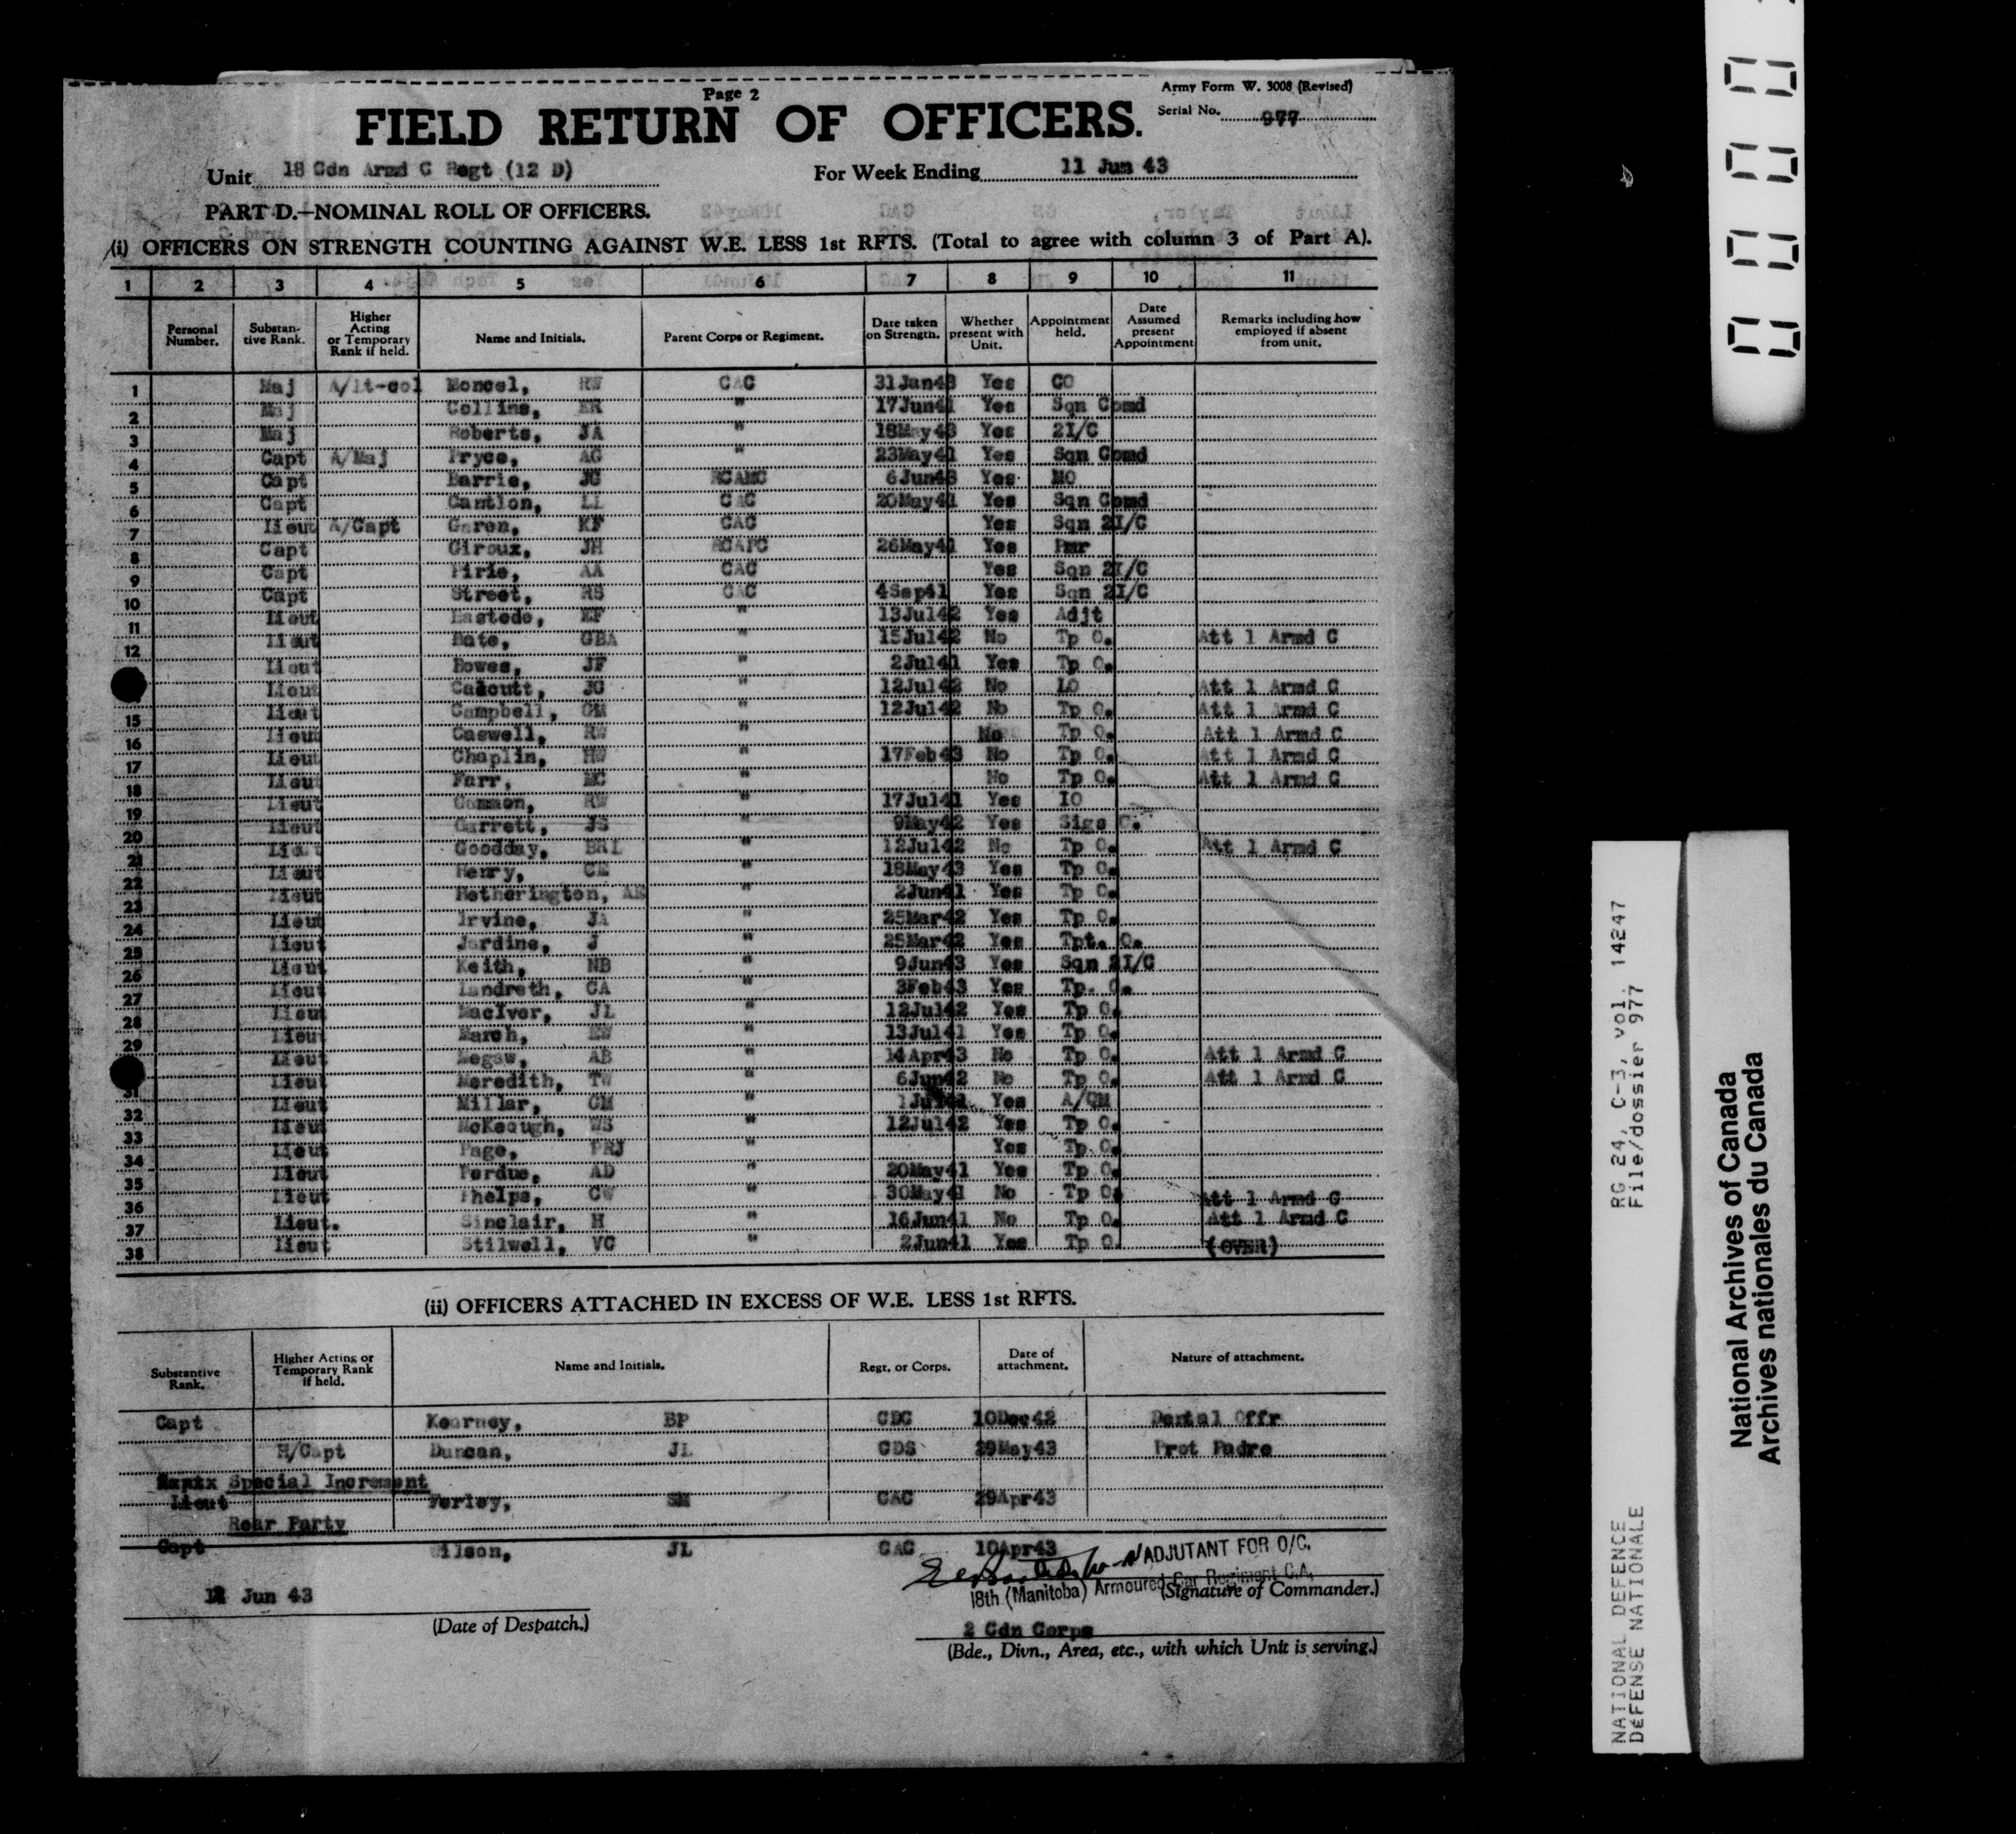 Page 2
Army Form W. 3008 (Revised)
FIELD RETURN OF OFFICERS.
Serial No. 977
Unit 18 Cdn Armd C Regt (12 D) For Week Ending 11 Jun 43
PART D.—NOMINAL ROLL OF OFFICERS.
(i) OFFICERS ON STRENGTH COUNTING AGAINST W.E. LESS 1st RFTS. (Total to agree with column 3 of Part A).
1 2 3 4 5 6 7 8 9 10 11
Personal Number. Substantive Rank. Higher Acting or Temporary Rank if held. Name and Initials. Parent Corps or Regiment. Date taken on Strength. Whether present with Unit. Appointment held. Date Assumed present Appointment Remarks including how employed if absent from unit.
1 Maj A/Lt-col Moncel, RW CAC 31Jan43 Yes CO
2 Maj Collins, " 17Jun41 Yes Sqn Comd
3 Maj Roberts, JA " 18May43 Yes 2I/C
4 Capt A/Maj Pryce, AG " 23May41 Yes Sqn Comd
5 Capt Barrie, JG RCAMC 6Jun43 Yes MO
6 Capt Cantlon, LL CAC 20May41 Yes Sqn Comd
7 Lieut A/Capt Garon, KF CAC Yes Sqn 2I/C
8 Capt Giroux, JH RCAPC 26May41 Yes Pmr
9 Capt Pirie, AA CAC Yes Sqn 2I/C
10 Capt Street, RS CAC 4Sep41 Yes Sqn 2I/C
11 Lieut Eastedo, EF " 13Jul42 Yes Adjt
12 Lieut Bate, GBA " 15Jul42 No Tp O. Att 1 Armd C
Lieut Bowes, JF " 2Jul41 Yes Tp O.
Lieut Calcutt, JG " 12Jul42 No LO Att 1 Armd C
15 Lieut Campbell, GM " 12Jul42 No Tp O. Att 1 Armd C
16 Lieut Caswell, RW " No Tp O. Att 1 Armd C
17 Lieut Chaplin, HW " 17Feb43 No Tp O. Att 1 Armd C
18 Lieut Farr, MC " No Tp O. Att 1 Armd C
19 Lieut Gammon, RW " 17Jul41 Yes IO
20 Lieut Garrett, JS " 9May42 Yes Sigs O.
21 Lieut Goodday, " 12Jul42 No Tp O. Att 1 Armd C
22 Lieut Henry, CE " 18May43 Yes Tp O.
23 Lieut Hetherington, " 2Jun41 Yes Tp O.
24 Lieut Irvine, JA " 25Mar42 Yes Tp O.
25 Lieut Jardine, J " 25Mar42 Yes Tpt. O.
26 Lieut Keith, NB " 9Jun43 Yes Sqn 2I/C
27 Lieut Landreth, CA " 3Feb43 Yes Tp. O.
28 Lieut MacIver, JL " 12Jul42 Yes Tp O.
29 Lieut March, EW " 13Jul41 Yes Tp O.
Lieut Megaw, AB " 14Apr43 No Tp O. Att 1 Armd C
31 Lieut Meredith, TW " 6Jun42 No Tp O. Att 1 Armd C
32 Lieut Millar, GM " Yes A/QM
33 Lieut McKeough, WS " 12Jul42 Yes Tp O.
34 Lieut Page, PRJ " Yes Tp O.
35 Lieut Perdue, AD " 20May41 Yes Tp O.
36 Lieut Phelps, CW " 30May41 No Tp O. Att 1 Armd C
37 Lieut. Sinclair, H " 16Jun41 No Tp O. Att 1 Armd C
38 Lieut Stilwell, VC " 2Jun41 Yes Tp O. (OVER)
(ii) OFFICERS ATTACHED IN EXCESS OF W.E. LESS 1st RFTS.
Substantive Rank. Higher Acting or Temporary Rank if held. Name and Initials. Regt. or Corps. Date of attachment. Nature of attachment.
Capt Kearney, BP CDC 10Dec42 Dental Offr
H/Capt Duncan, JL CDS 29May43 Prot Padre
Special Increment
Lieut SM CAC 29Apr43
Rear Party
Capt Wilson, JL CAC 10Apr43
ADJUTANT FOR O/C.
18th (Manitoba) Armoured Car Regiment C.A.
(Signature of Commander.)
12 Jun 43
(Date of Despatch.)
2 Cdn Corps
(Bde., Divn., Area, etc., with which Unit is serving.)
RG 24, C-3, vol. 14247
File/dossier 977
NATIONAL DEFENCE
DÉFENSE NATIONALE
National Archives of Canada
Archives nationales du Canada